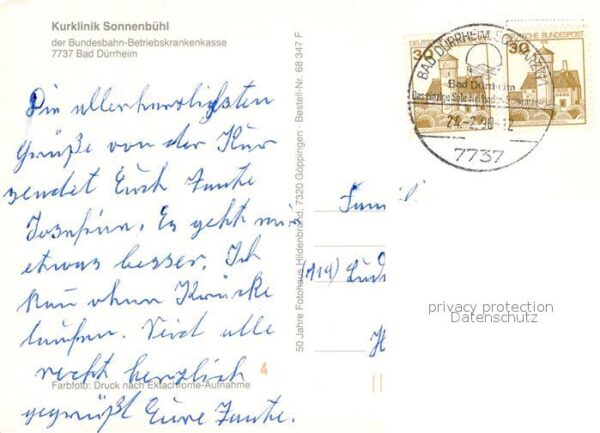 Kurklinik Sonnenbühl
der Bundesbahn-Betriebskrankenkasse
7737 Bad Dürrheim
Die allerherzlichsten
Grüße von der Kur
sendet Euch Tante
Josefine. Es geht mir
etwas besser. Ich
kann ohne Krücke
laufen. Seid alle
recht herzlich
gegrüßt Eure Tante.
Farbfoto: Druck nach Ektachrome-Aufnahme
4
50 Jahre Fotohaus Hildenbrand, 7320 Göppingen · Bestell-Nr. 68 347 F
30
DEUTSCHE BUNDESPOST
30
BAD DÜRRHEIM, SCHWARZW
Bad Dürrheim
24.-2.90-12
7737
Famil
privacy protection
Datenschutz